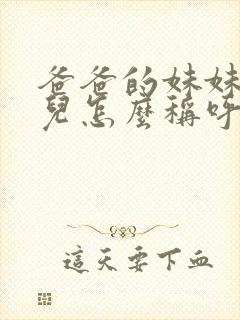 爸爸的妹妹
兒怎麼稱呼
這天要下血